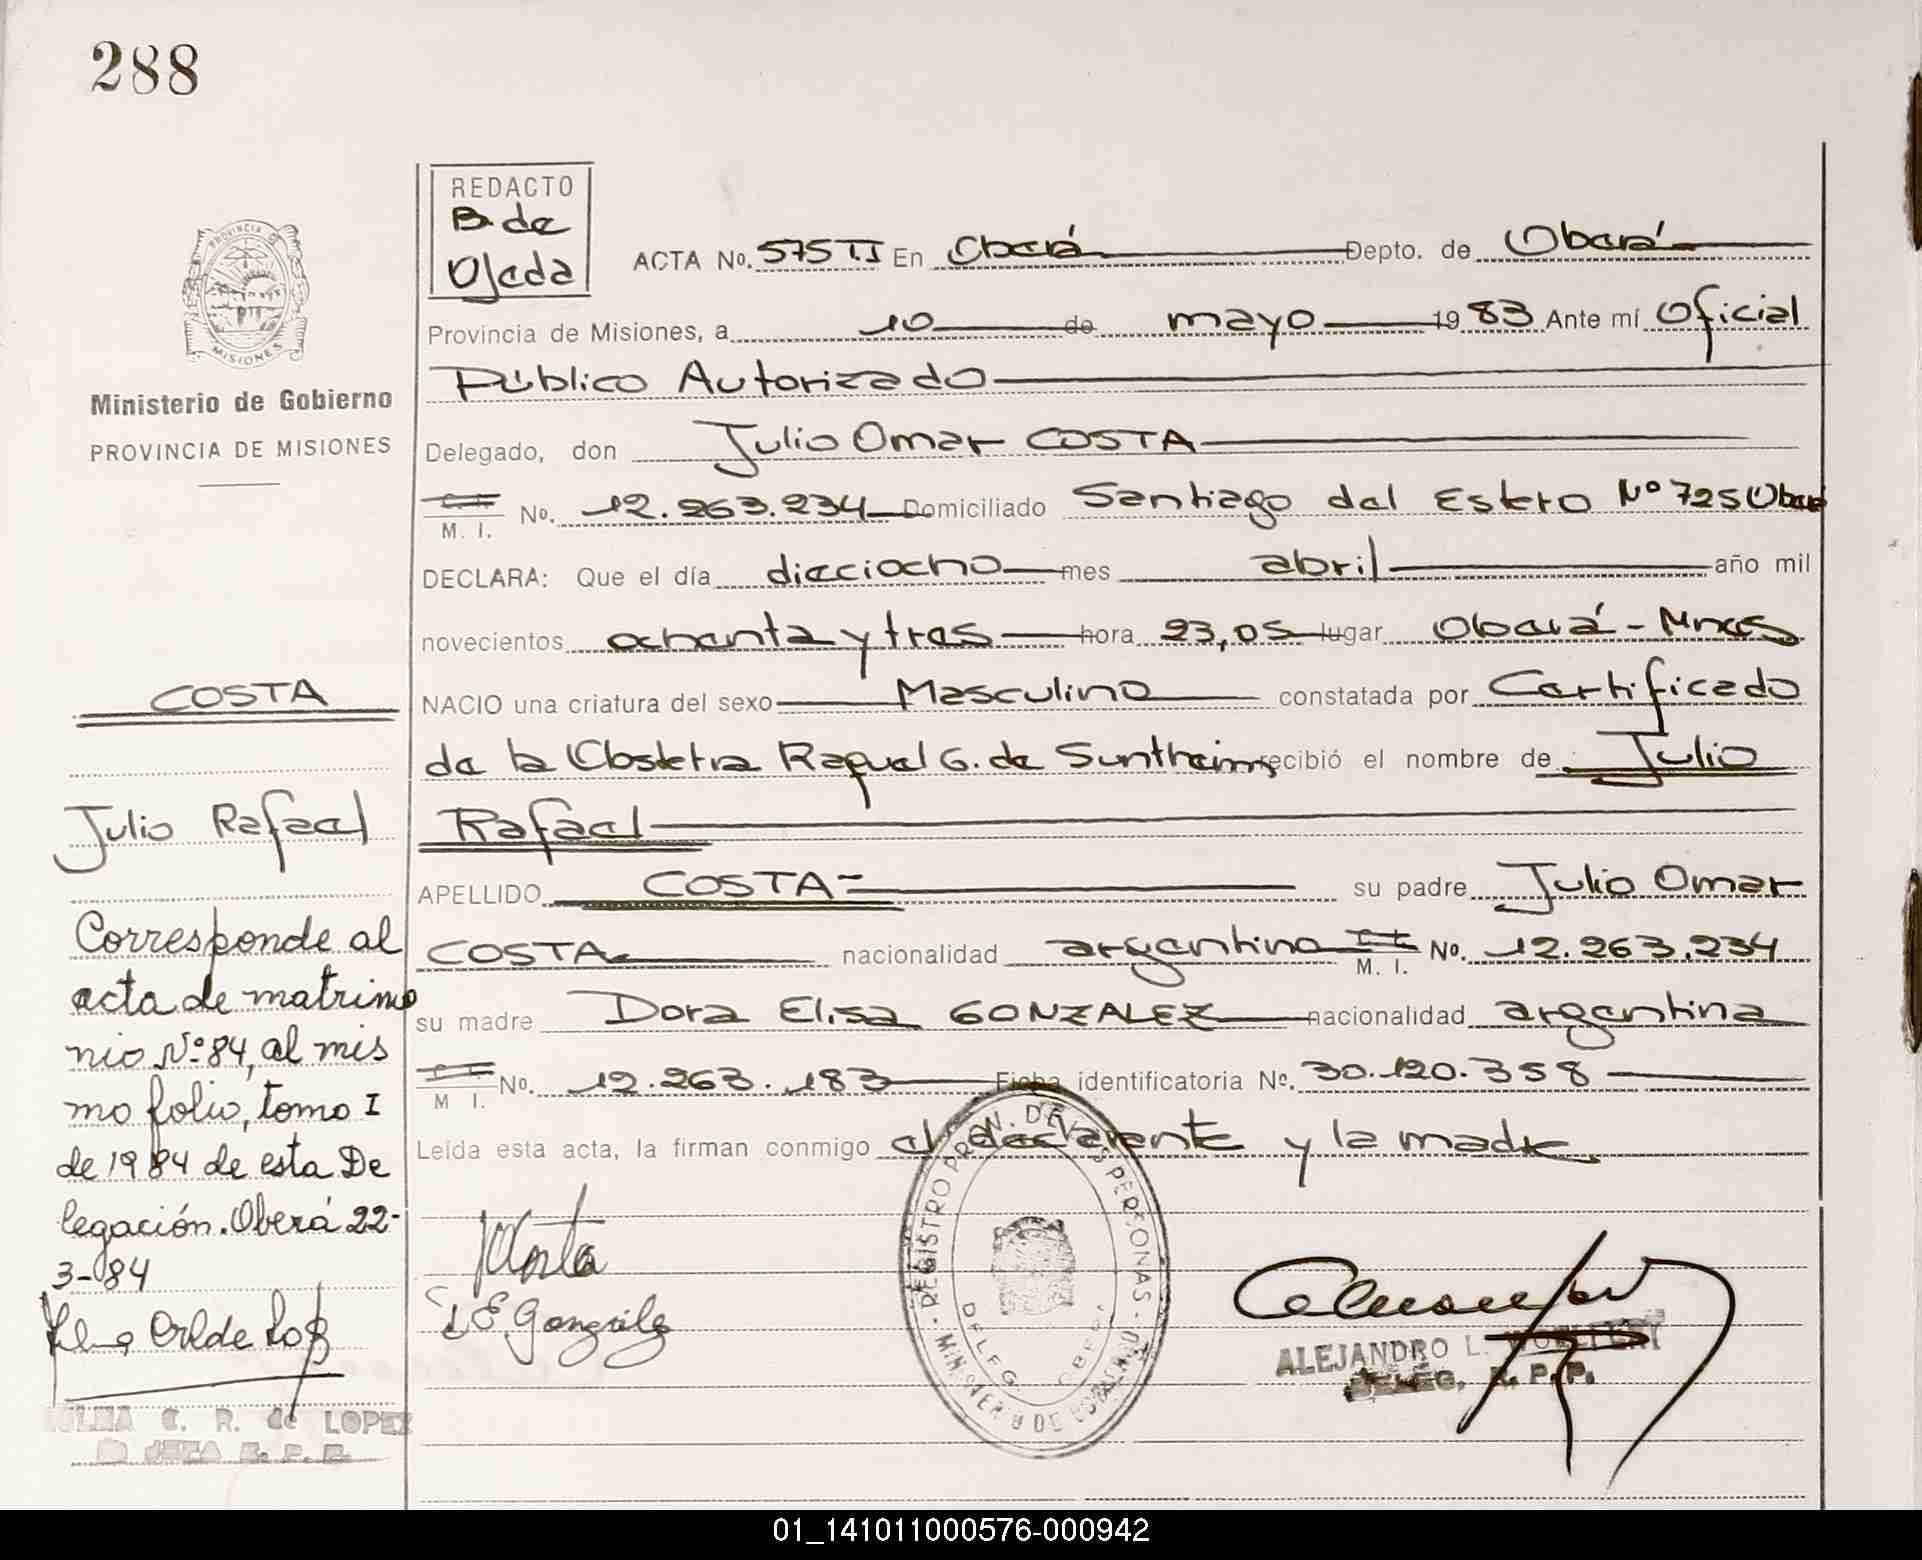 288
REDACTO
B. de
Ojeda
ACTA No. 575 T.I En Oberá Depto. de Oberá
Provincia de Misiones, a 10 de mayo 1983 Ante mí Oficial
Público Autorizado
Delegado, don Julio Omar COSTA
M. I. No. 12.263.234 Domiciliado Santiago del Estero Nº 725 Oberá
DECLARA: Que el día dieciocho mes abril año mil
novecientos ochenta y tres hora 23,05 lugar Oberá - Mnes
NACIO una criatura del sexo Masculino constatada por Certificado
de la Obstetra Raquel G. de Suntheim recibió el nombre de Julio
Rafael
APELLIDO COSTA su padre Julio Omar
COSTA nacionalidad argentina M. I. No. 12.263.234
su madre Dora Elisa GONZALEZ nacionalidad argentina
M I. No. 12.263.183 Ficha identificatoria No. 30.120.358
Leída esta acta, la firman conmigo el declarante y la madre
PROVINCIA D
MISIONES
Ministerio de Gobierno
PROVINCIA DE MISIONES
COSTA
Julio Rafael
Corresponde al
acta de matrimo
nio Nº 84, al mis
mo folio, tomo I
de 1984 de esta De
legación. Oberá 22-
3-84
C. R. de LOPEZ
D. E. Gonzalez
REGISTRO PROV. DE LAS PERSONAS - MINISTERIO DE GOBIERNO
DELEG. OBERA
ALEJANDRO L.
DELEG. R. P. P.
01_141011000576-000942